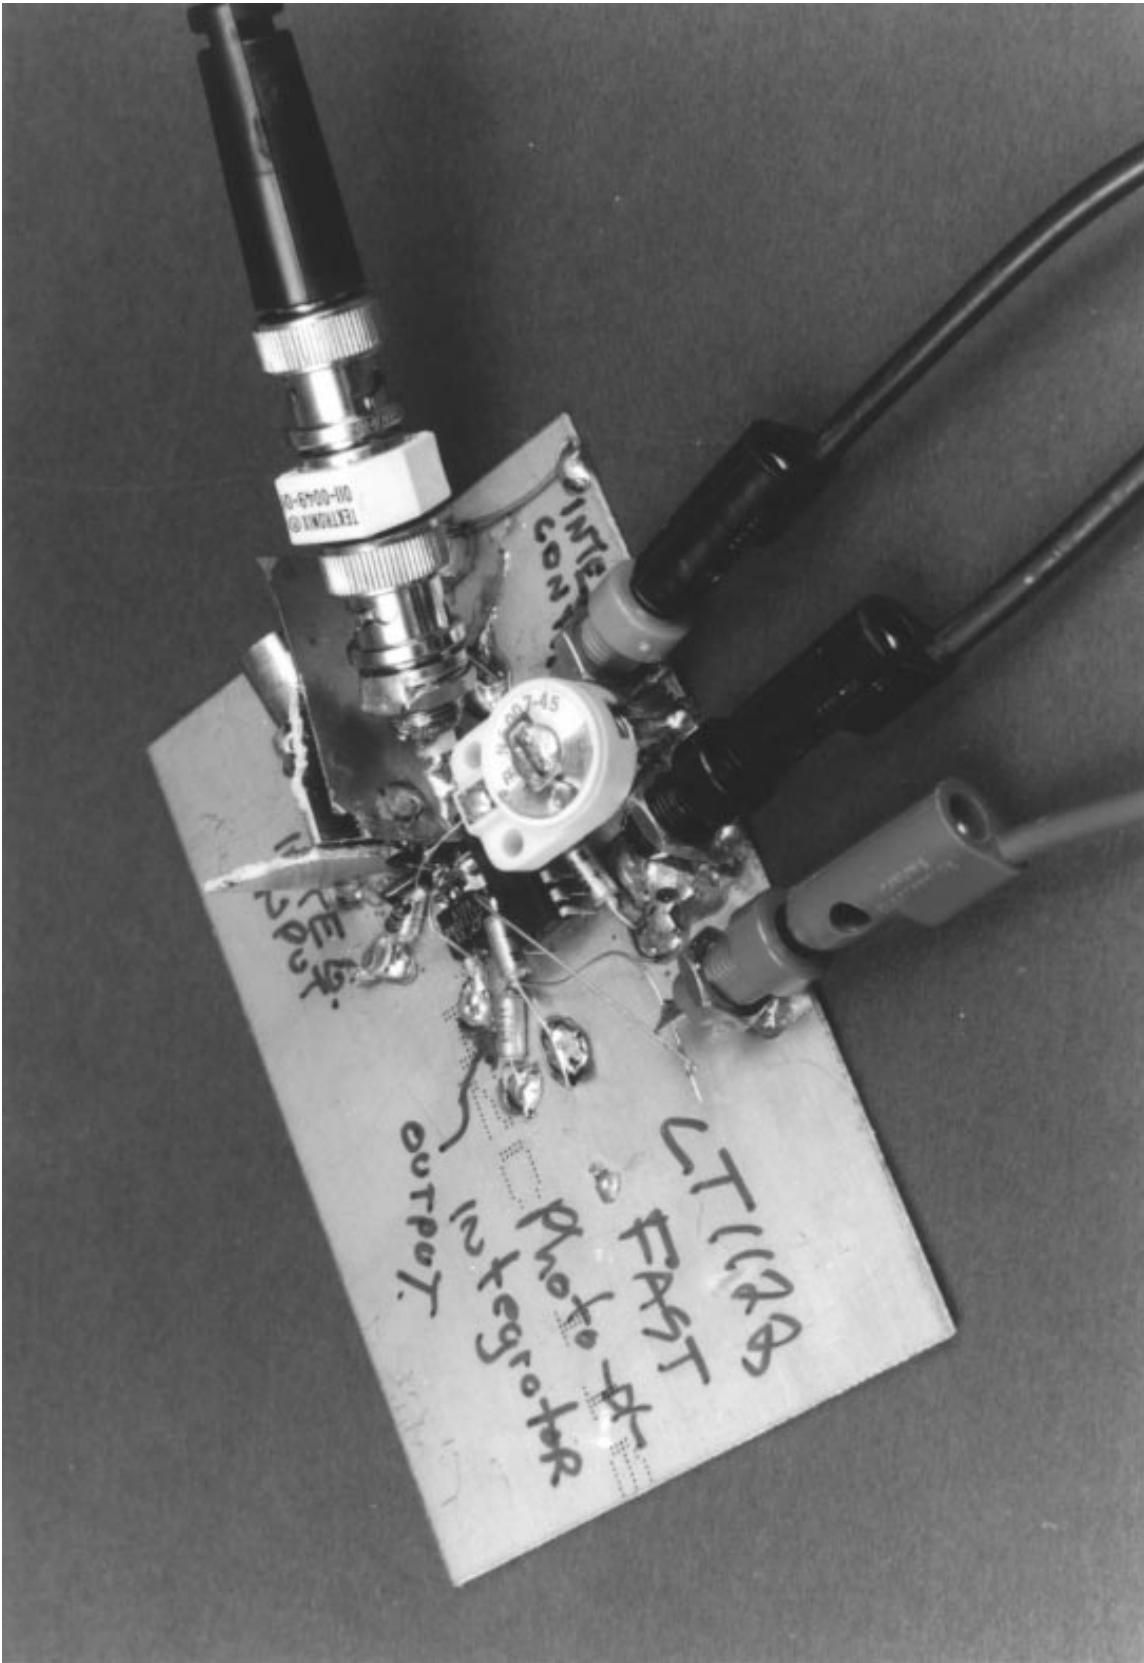 TEKTRONIX®
011-0049-0
INTE
CONT.
7-45
PUT
OUTPUT.
LT1122
FAST
Photo
Integrator